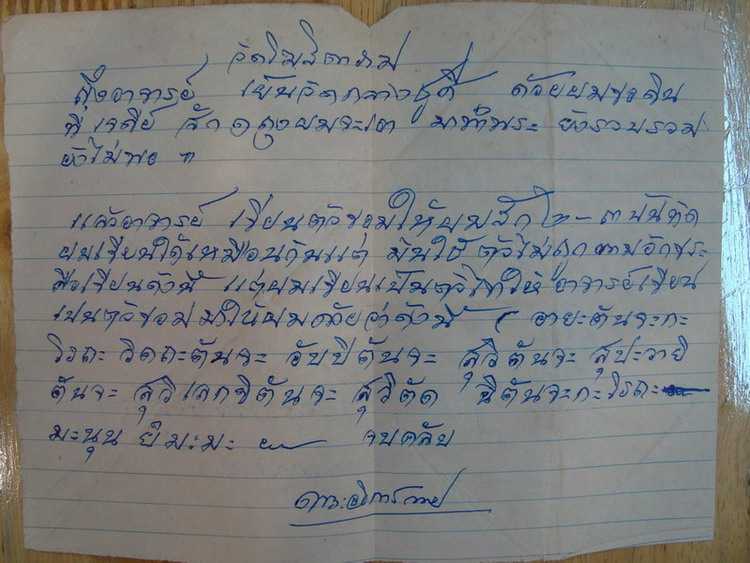 วัดโฆสิตาราม
ถึงอาจารย์ เย็นวัดกลางชูศรี ด้วยผมขอดิน
ที่เจดีย์ สัก ๑ ถุงผมจะเอา มาทำพระ ยังรวบรวม
ยังไม่พอ ฯ
แล้วอาจารย์ เขียนตัวขอมให้ผมสัก ๒-๓ บันทัด
ผมเขียนได้เหมือนกันแต่ มันใช้ ตัวไม่ถูกตามอักขระ
คือเขียนดังนี้ แต่ผมเขียนเป็นตัวไทให้ อาจารย์เขียน
เปนตัวขอมมาให้ผมด้วยว่าดังนี้ ( อายะตันจะกะ
วิรถะ วิตถะตันจะ อัปปิตันจะ สุวิตันจะ สุปะวายิ
ตันจะ สุวิเลกขิตันจะ สุวิตัด ฉิตันจะกะวิรถะ
มะนุน ยิมะมะ จบคลับ